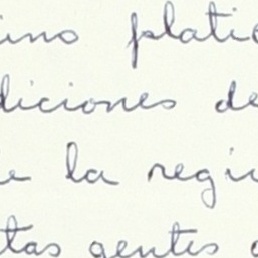 ino platic
diciones de
e la regi
tas gentes